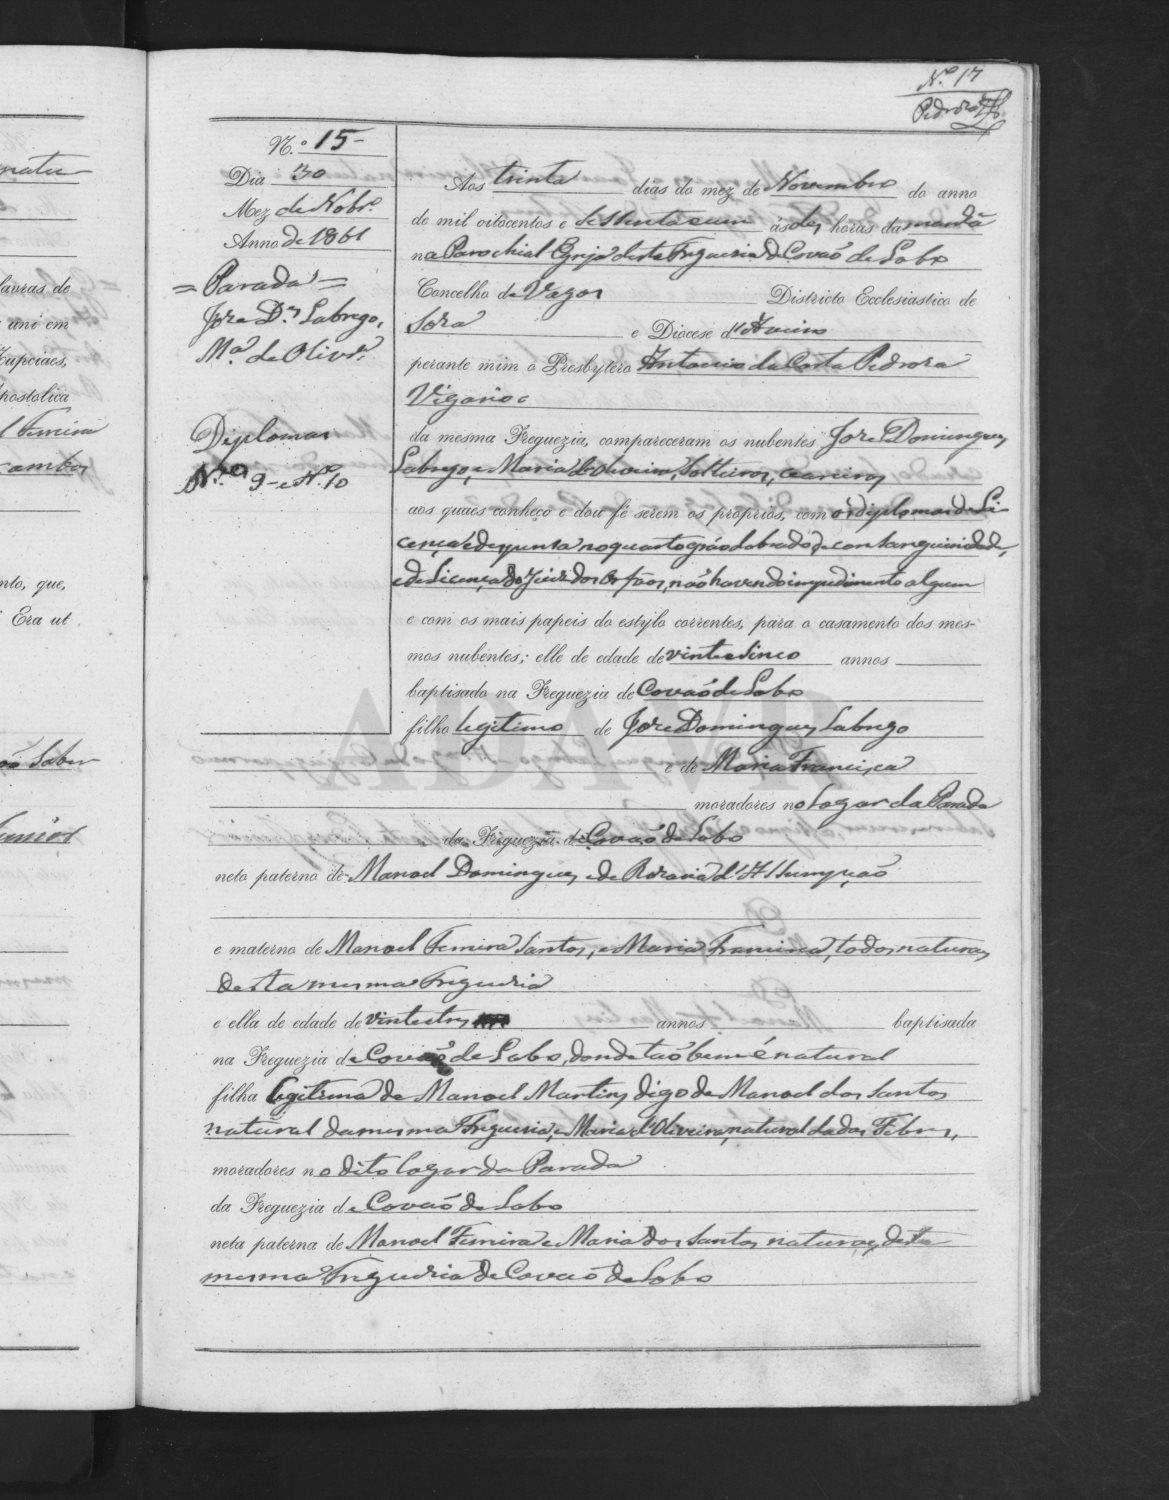 N.º 17
Pedroza
N.º 15 -
Dia 30
Mez de Nobr.º
Anno de 1861
= Parada =
Joze D.es Labrego,
M.ª de Olivr.ª
Diplomas
N.º 9 - e N.º 10
Aos trinta dias do mez de Novembro do anno
de mil oitocentos e sessenta e um ás des horas da manhã
na Parochial Egreja desta Freguezia de Covaõ de Lobo
Concelho de Vagos Districto Ecclesiastico de
Sora e Diocese d'Aveiro
perante mim o Presbytero Antonio da Costa Pedroza
Vigario
da mesma Freguezia, compareceram os nubentes Joze Domingues
Labrego, e Maria d'Oliveira, Solteiros, e
aos quaes conheço e dou fé serem os proprios, com os diplomas de Li-
cença e dispensa no quarto gráo dobrado de consanguinidade,
e de Licença do Juiz dos Orfãos, não havendo impedimento algum
e com os mais papeis do estylo correntes, para o casamento dos mes-
mos nubentes; elle de edade de vinte e sinco annos
baptisado na Freguezia de Covaõ de Lobo
filho legitimo de Joze Domingues Labrego
e de Maria Francisca
moradores no Logar da Parada
da Freguezia de Covaõ de Lobo
neto paterno de Manoel Domingues, e de Rozaria d'Assumpçaõ
e materno de Manoel Ferreira Santos, e Maria Francisca, todos naturaes
desta mesma Freguezia
e ella de edade de vinte e tres annos baptisada
na Freguezia de Covaõ de Lobo, donde taõbem é natural
filha legitima de Manoel Martins, digo de Manoel dos Santos
natural da mesma Freguezia, e Maria d'Oliveira, natural da das Febres,
moradores no dito logar da Parada
da Freguezia de Covaõ de Lobo
neta paterna de Manoel Ferreira e Maria dos Santos naturaes desta
mesma Freguezia de Covaõ de Lobo
ADAVR
natu
lavras de
uni em
Zupciaes,
postolica
Ferreira
nto, que,
Era ut